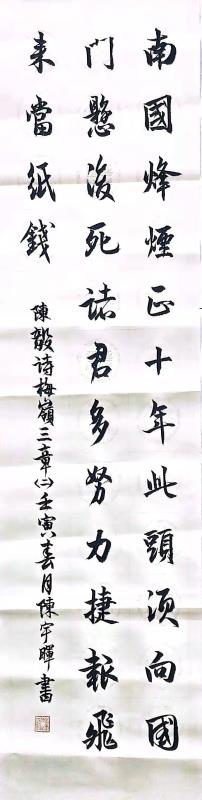 南國烽煙正十年此頭須向國
門懸後死諸君多努力捷報飛
来當紙錢
陳毅诗梅嶺三章㈡壬寅春月陳宇暉書